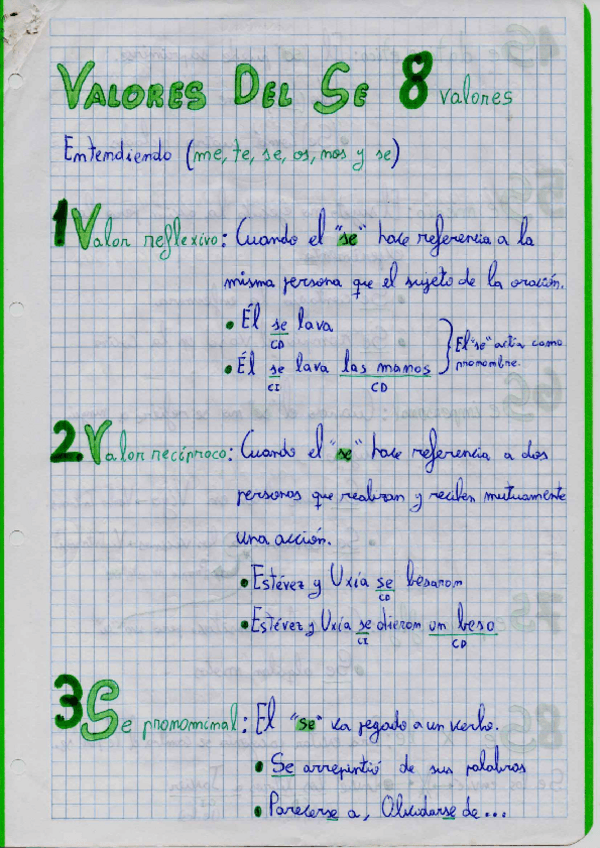 VALORES DEL SE 8 valores
Entendiendo (me, te, se, os, nos y se)
1 Valor reflexivo: Cuando el "se" hace referencia a la
misma persona que el sujeto de la oración.
• Él se lava
CD
• Él se lava las manos
CI CD
} El "se" actúa como
pronombre.
2. Valor recíproco: Cuando el "se" hace referencia a dos
personas que realizan y reciben mutuamente
una acción.
• Estévez y Uxía se besaron
CD
• Estévez y Uxía se dieron un beso
CI CD
3 Se pronominal: El "se" va pegado a un verbo.
• Se arrepintió de sus palabras
• Parecerse a, Olvidarse de...